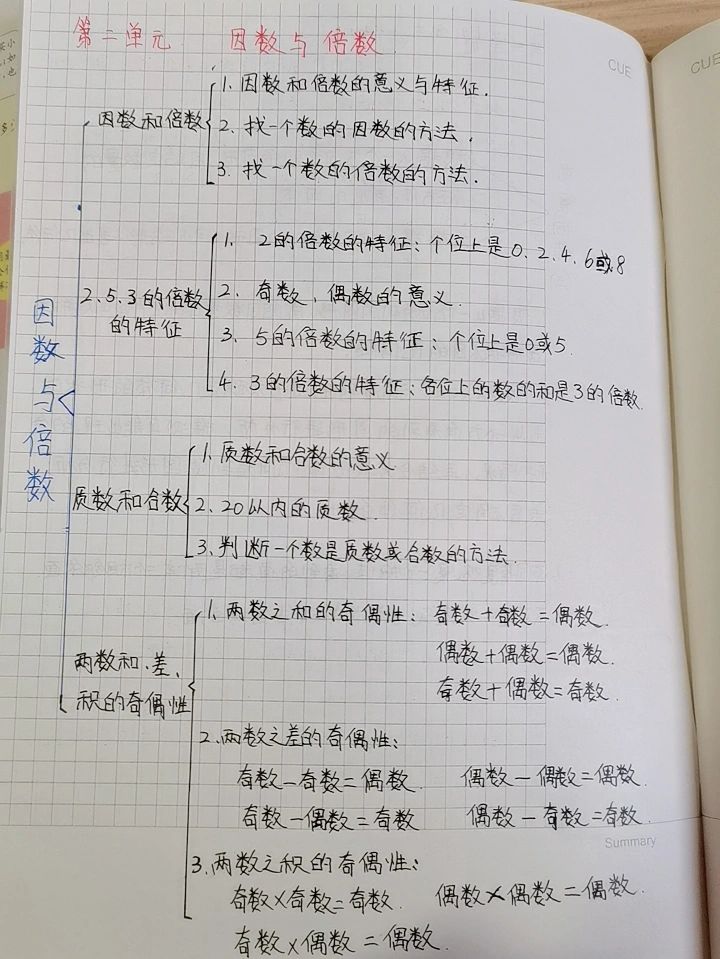 第二单元 因数与倍数
CUE
CUE
因数与倍数
因数和倍数
1.因数和倍数的意义与特征.
2.找一个数的因数的方法.
3.找一个数的倍数的方法.
2、5、3的倍数
的特征
1. 2的倍数的特征：个位上是0、2、4、6或8
2. 奇数、偶数的意义.
3. 5的倍数的特征：个位上是0或5.
4. 3的倍数的特征：各位上的数的和是3的倍数.
质数和合数
1.质数和合数的意义
2.20以内的质数.
3.判断一个数是质数或合数的方法.
两数和、差、
积的奇偶性
1.两数之和的奇偶性： 奇数+奇数=偶数.
偶数+偶数=偶数.
奇数+偶数=奇数.
2.两数之差的奇偶性：
奇数-奇数=偶数. 偶数-偶数=偶数.
奇数-偶数=奇数 偶数-奇数=奇数.
Summary
3.两数之积的奇偶性：
奇数×奇数=奇数. 偶数×偶数=偶数.
奇数×偶数=偶数.